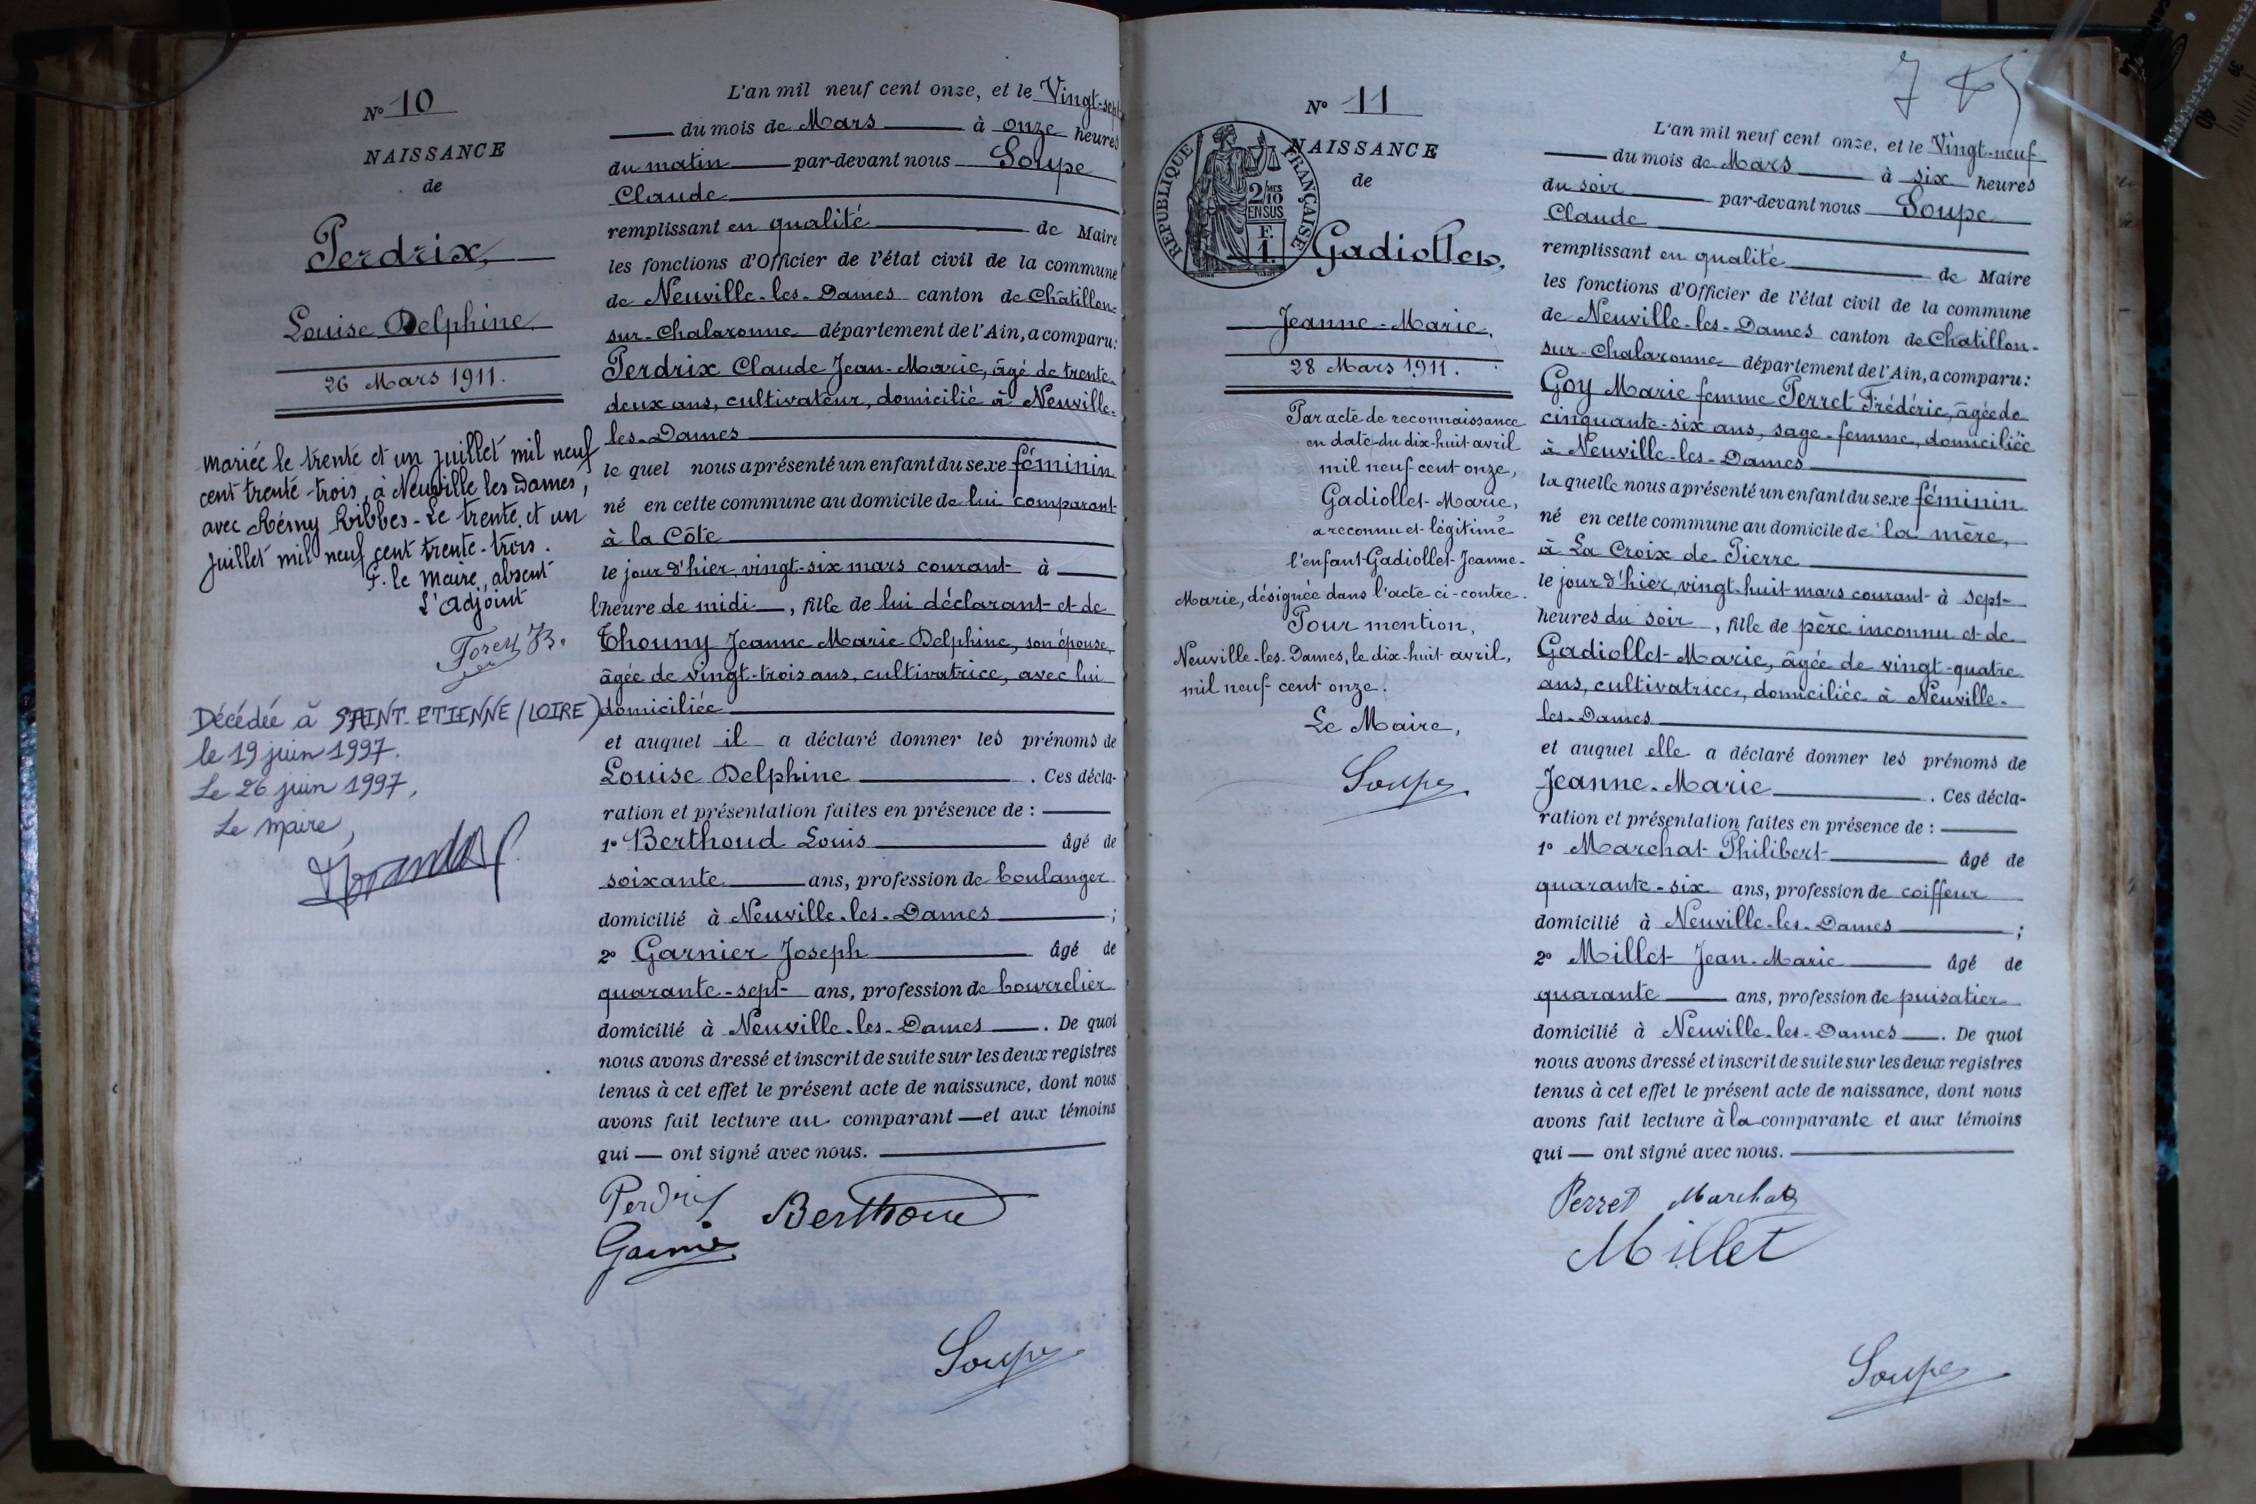 N° 10
NAISSANCE
de
Perdrix
Louise Delphine
26 Mars 1911.
mariée le trente et un juillet mil neuf
cent trente-trois, à Neuville les Dames,
avec Rémy Ribbes - Le trente et un
juillet mil neuf cent trente-trois.
P. le Maire, absent
L'adjoint
Décédée à SAINT-ETIENNE (LOIRE)
le 19 juin 1997.
Le 26 juin 1997,
Le Maire,
L'an mil neuf cent onze, et le Vingt-sept
du mois de Mars à onze heures
du matin par-devant nous Soupe
Claude
remplissant en qualité de Maire
les fonctions d'Officier de l'état civil de la commune
de Neuville-les-Dames canton de Châtillon-
sur-Chalaronne département de l'Ain, a comparu:
Perdrix Claude Jean-Marie, âgé de trente-
deux ans, cultivateur, domicilié à Neuville-
les-Dames
le quel nous a présenté un enfant du sexe féminin
né en cette commune au domicile de lui comparant
à la Côte
le jour d'hier, vingt-six mars courant à
l'heure de midi, fille de lui déclarant et de
Thouny Jeanne Marie Delphine, son épouse,
âgée de vingt-trois ans, cultivatrice, avec lui
domiciliée
et auquel il a déclaré donner les prénoms de
Louise Delphine. Ces décla-
ration et présentation faites en présence de :
1° Berthoud Louis âgé de
soixante ans, profession de boulanger
domicilié à Neuville-les-Dames ;
2° Garnier Joseph âgé de
quarante-sept ans, profession de bourrelier
domicilié à Neuville-les-Dames. De quoi
nous avons dressé et inscrit de suite sur les deux registres
tenus à cet effet le présent acte de naissance, dont nous
avons fait lecture au comparant et aux témoins
qui ont signé avec nous.
Perdrix Berthoud
Garnier
Soupe
N° 11
RÉPUBLIQUE FRANÇAISE
2/MES
10
EN SUS
F.
1.
NAISSANCE
de
Gadiollet,
Jeanne-Marie.
28 Mars 1911.
Par acte de reconnaissance
en date du dix-huit avril
mil neuf cent onze,
Gadiollet Marie,
a reconnu et légitimé
l'enfant Gadiollet Jeanne-
Marie, désignée dans l'acte ci-contre.
Pour mention,
Neuville-les-Dames, le dix-huit avril,
mil neuf cent onze.
Le Maire,
Soupe
L'an mil neuf cent onze, et le Vingt-neuf
du mois de Mars à six heures
du soir par-devant nous Soupe
Claude
remplissant en qualité de Maire
les fonctions d'Officier de l'état civil de la commune
de Neuville-les-Dames canton de Chatillon-
sur-Chalaronne département de l'Ain, a comparu:
Goy Marie femme Perret Frédéric, âgée de
cinquante-six ans, sage-femme, domiciliée
à Neuville-les-Dames
la quelle nous a présenté un enfant du sexe féminin
né en cette commune au domicile de la mère,
à La Croix de Pierre
le jour d'hier, vingt-huit mars courant à sept
heures du soir, fille de père inconnu et de
Gadiollet Marie, âgée de vingt-quatre
ans, cultivatrice, domiciliée à Neuville-
les-Dames
et auquel elle a déclaré donner les prénoms de
Jeanne-Marie. Ces décla-
ration et présentation faites en présence de :
1° Marchat Philibert âgé de
quarante-six ans, profession de coiffeur
domicilié à Neuville-les-Dames ;
2° Millet Jean-Marie âgé de
quarante ans, profession de puisatier
domicilié à Neuville-les-Dames. De quoi
nous avons dressé et inscrit de suite sur les deux registres
tenus à cet effet le présent acte de naissance, dont nous
avons fait lecture à la comparante et aux témoins
qui ont signé avec nous.
Perret Marchat
Millet
Soupe